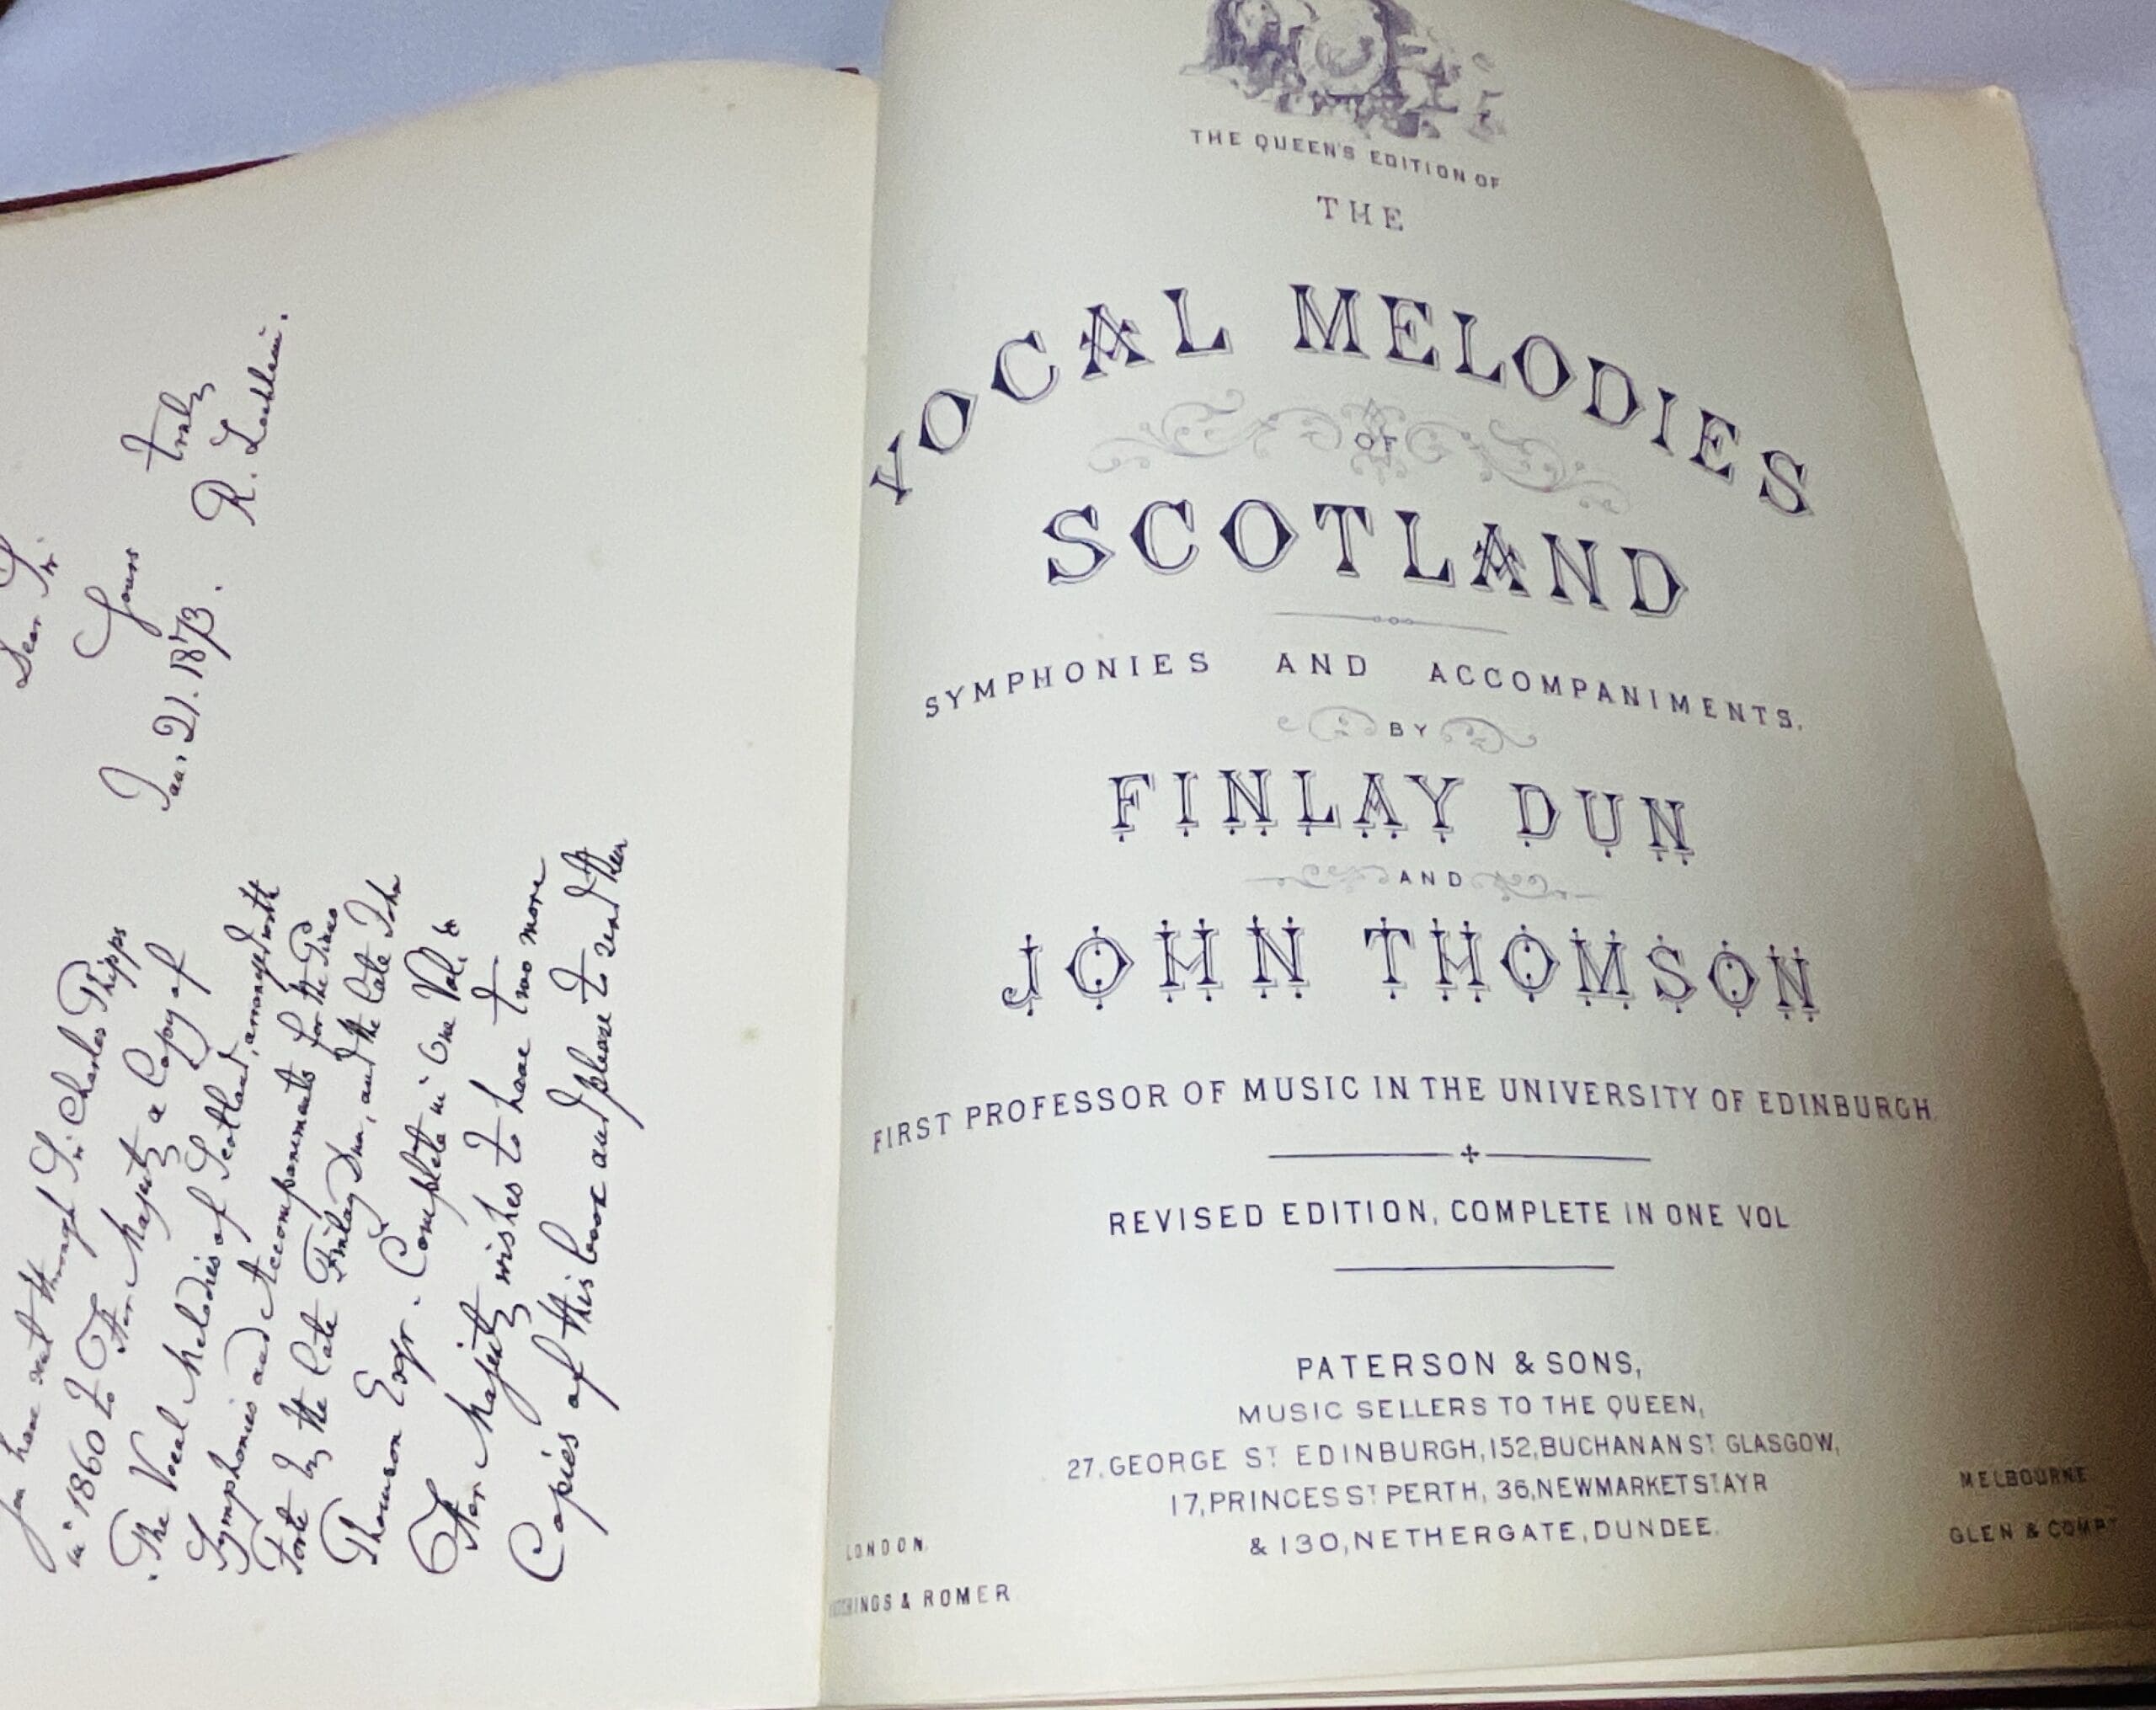 You have sent through Sir Charles Phipps
in 1860 to Her Majesty a Copy of
"The Vocal Melodies of Scotland, arranged with
Symphonies and Accompaniments for the Piano
Forte by the late Finlay Dun, and the late John
Thomson Esqr. Complete in One Vol.
Her Majesty wishes to have two more
Copies of this book and please to send them
Dear Sir
Yours truly
Jan: 21. 1873. R.
THE QUEEN'S EDITION OF
THE
VOCAL MELODIES
OF
SCOTLAND
SYMPHONIES AND ACCOMPANIMENTS,
BY
FINLAY DUN
AND
JOHN THOMSON
FIRST PROFESSOR OF MUSIC IN THE UNIVERSITY OF EDINBURGH
REVISED EDITION, COMPLETE IN ONE VOL
PATERSON & SONS,
MUSIC SELLERS TO THE QUEEN,
27, GEORGE ST EDINBURGH, 152, BUCHANAN ST GLASGOW,
17, PRINCES ST PERTH, 36, NEWMARKET ST AYR
& 130, NETHERGATE, DUNDEE.
LONDON,
& ROMER
MELBOURNE
GLEN & COMPY